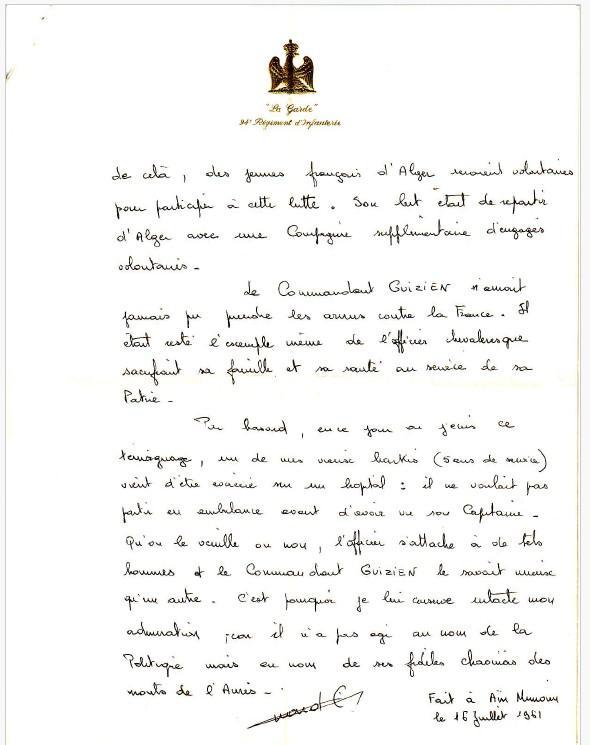 "La Garde"
94e Régiment d'Infanterie
de celà, des jeunes français d'Alger seraient volontaires
pour participer à cette lutte. Son but était de repartir
d'Alger avec une Compagnie supplémentaire d'engagés
volontaires -
Le Commandant GUIZIEN n'aurait
jamais pu prendre les armes contre la France. Il
était resté l'exemple même de l'officier chevaleresque
sacrifiant sa famille et sa santé au service de sa
Patrie -
Par hasard, en ce jour où j'écris ce
témoignage, un de mes vieux harkis (5 ans de service)
vient d'être évacué sur un hopital : il ne voulait pas
partir en ambulance avant d'avoir vu son Capitaine -
Qu'on le veuille ou non, l'officier s'attache à de tels
hommes et le Commandant GUIZIEN le savait mieux
qu'un autre. C'est pourquoi je lui conserve intacte mon
admiration, car il n'a pas agi au nom de la
Politique mais au nom de ses fidèles chaouias des
monts de l'Aurès -
Fait à Aïn
le 16 Juillet 1961